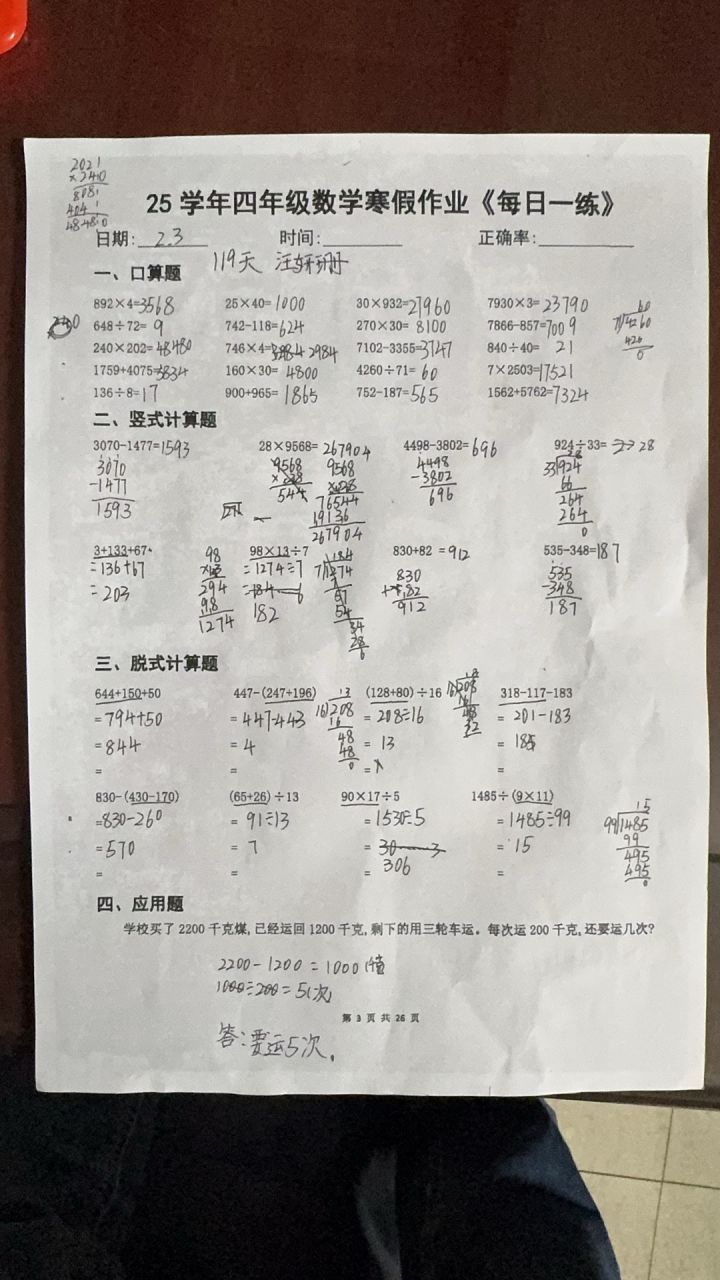 2021
×240
8081
4041
48480
25 学年四年级数学寒假作业《每日一练》
日期: 2.3 时间: 正确率:
119天
一、口算题
892×4=3568 25×40=1000 30×932=27960 7930×3=23790
648÷72=9 742-118=624 270×30=8100 7866-857=7009
240×202=48480 746×4=2984 7102-3355=3747 840÷40=21
1759+4075=5834 160×30=4800 4260÷71=60 7×2503=17521
136÷8=17 900+965=1865 752-187=565 1562+5762=7324
二、竖式计算题
3070-1477=1593 28×9568=267904 4498-3802=696 924÷33=28
3070 9568 9568 4498 33 924
-1477 ×28 -3802 66
1593 544 76544 696 264
19136 264
267904 0
3+133+67 98×13÷7 830+82=912 535-348=187
=136+67 98 =1274÷7 830 535
=203 294 182 +82 -348
98 912 187
1274
三、脱式计算题
644+150+50 447-(247+196) (128+80)÷16 318-117-183
=794+50 =447-443 =208÷16 =201-183
=844 =4 =13 =18
= = = =
830-(430-170) (65+26)÷13 90×17÷5 1485÷(9×11)
=830-260 =91÷13 =1530÷5 =1485÷99
=570 =7 = 306 =15
= = = =
四、应用题
学校买了 2200 千克煤,已经运回 1200 千克,剩下的用三轮车运。每次运 200 千克,还要运几次?
2200-1200=1000
1000÷200=5(次)
第 3 页 共 26 页
答:要运5次。